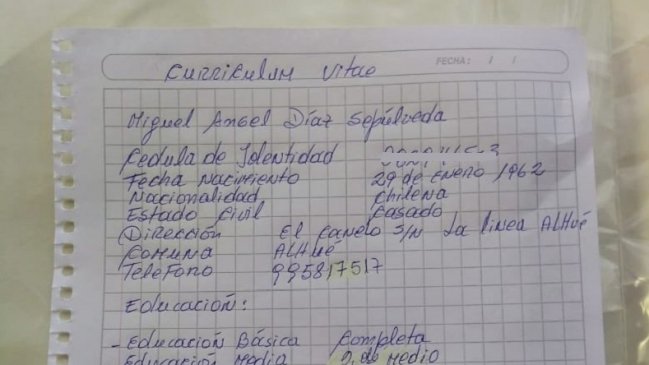 Curriculum Vitae
FECHA: / /
Miguel Angel Díaz Sepúlveda
Cedula de Identidad
Fecha Nacimiento 29 de Enero 1962
Nacionalidad Chilena
Estado Civil Casado
Dirección El Canelo S/N La Linea ALHUÉ
Comuna ALHUÉ
Telefono 995817517
Educación:
- Educación Básica Completa
Educación Media 2do Medio